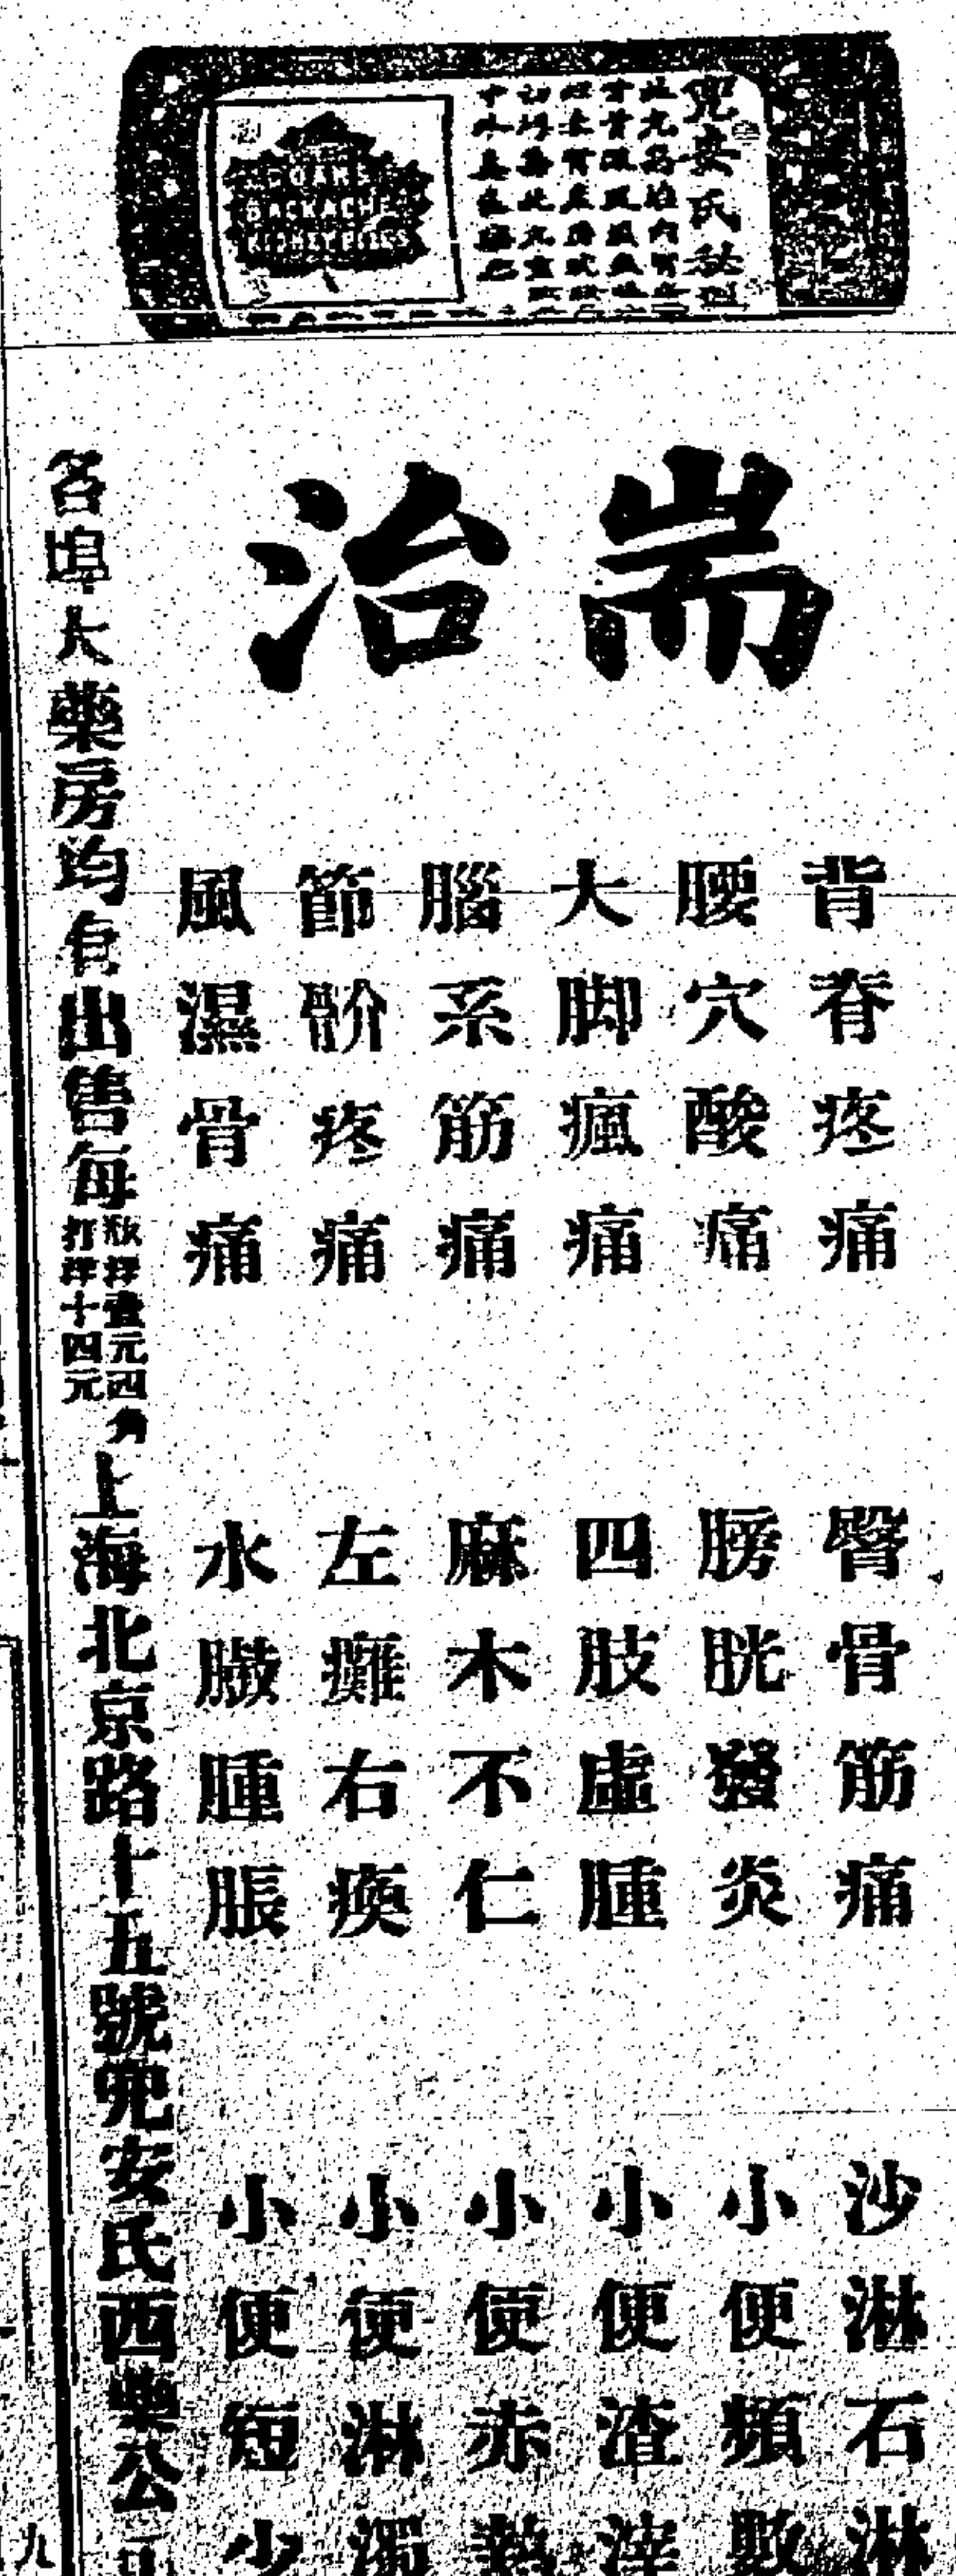 DOAN'S
BACKACHE
KIDNEY PILLS
兜安氏秘製
耑治
背脊疼痛
腰穴酸痛
大脚瘋痛
腦系筋痛
節骱疼痛
風濕骨痛
臀骨筋痛
膀胱發炎
四肢虛腫
麻木不仁
左癱右瘓
水臌腫脹
沙淋石淋
小便頻數
小便渣滓
小便赤熱
小便淋濁
小便短少
各埠大藥房均有出售每瓶洋壹元四角
打洋十四元
上海北京路十五號兜安氏西藥公司
九